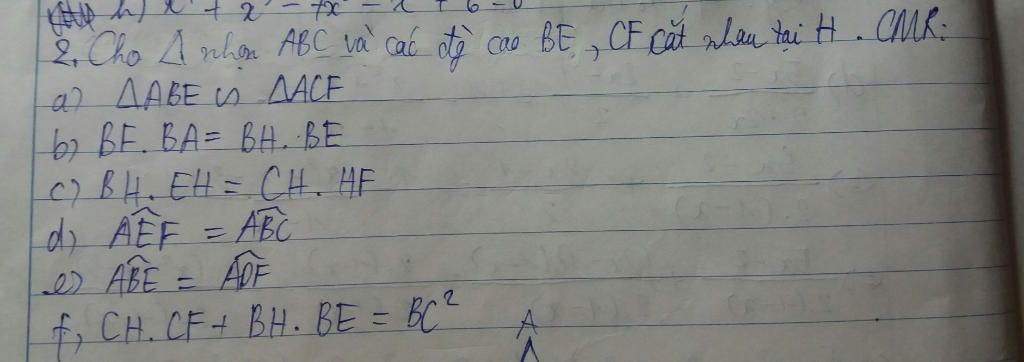 h) x⁴ + x³ - 7x² - x + 6 = 0
2. Cho Δ nhọn ABC và các đg̀ cao BE, CF cắt nhau tại H. CMR:
a) ΔABE ∽ ΔACF
b) BF. BA = BH. BE
c) BH. EH = CH. HF
d) AÊF = AB̂C
e) AB̂E = AD̂F
f, CH. CF + BH. BE = BC²
A